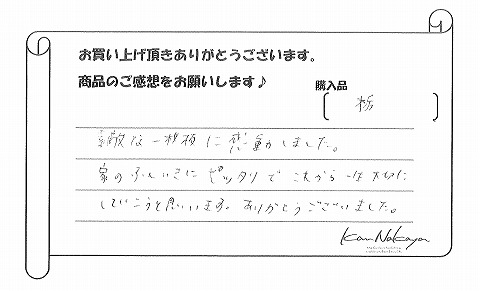 お買い上げ頂きありがとうございます。
商品のご感想をお願いします♪
購入品
栃
素敵な一枚板に感動しました。
家のふんいきにピッタリで これから 大切に
していこうと思います。ありがとうございました。
Kan Nakaya